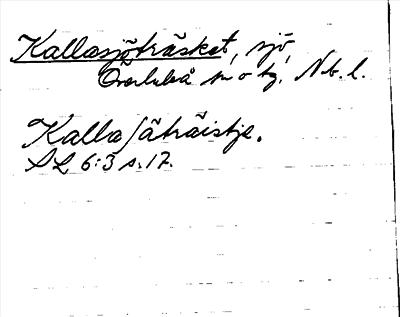 Kallasjöträsket, sjö
Överluleå sn o tg, Nb. l.
Kallasjäträistje.
SL 6:3 s. 17.